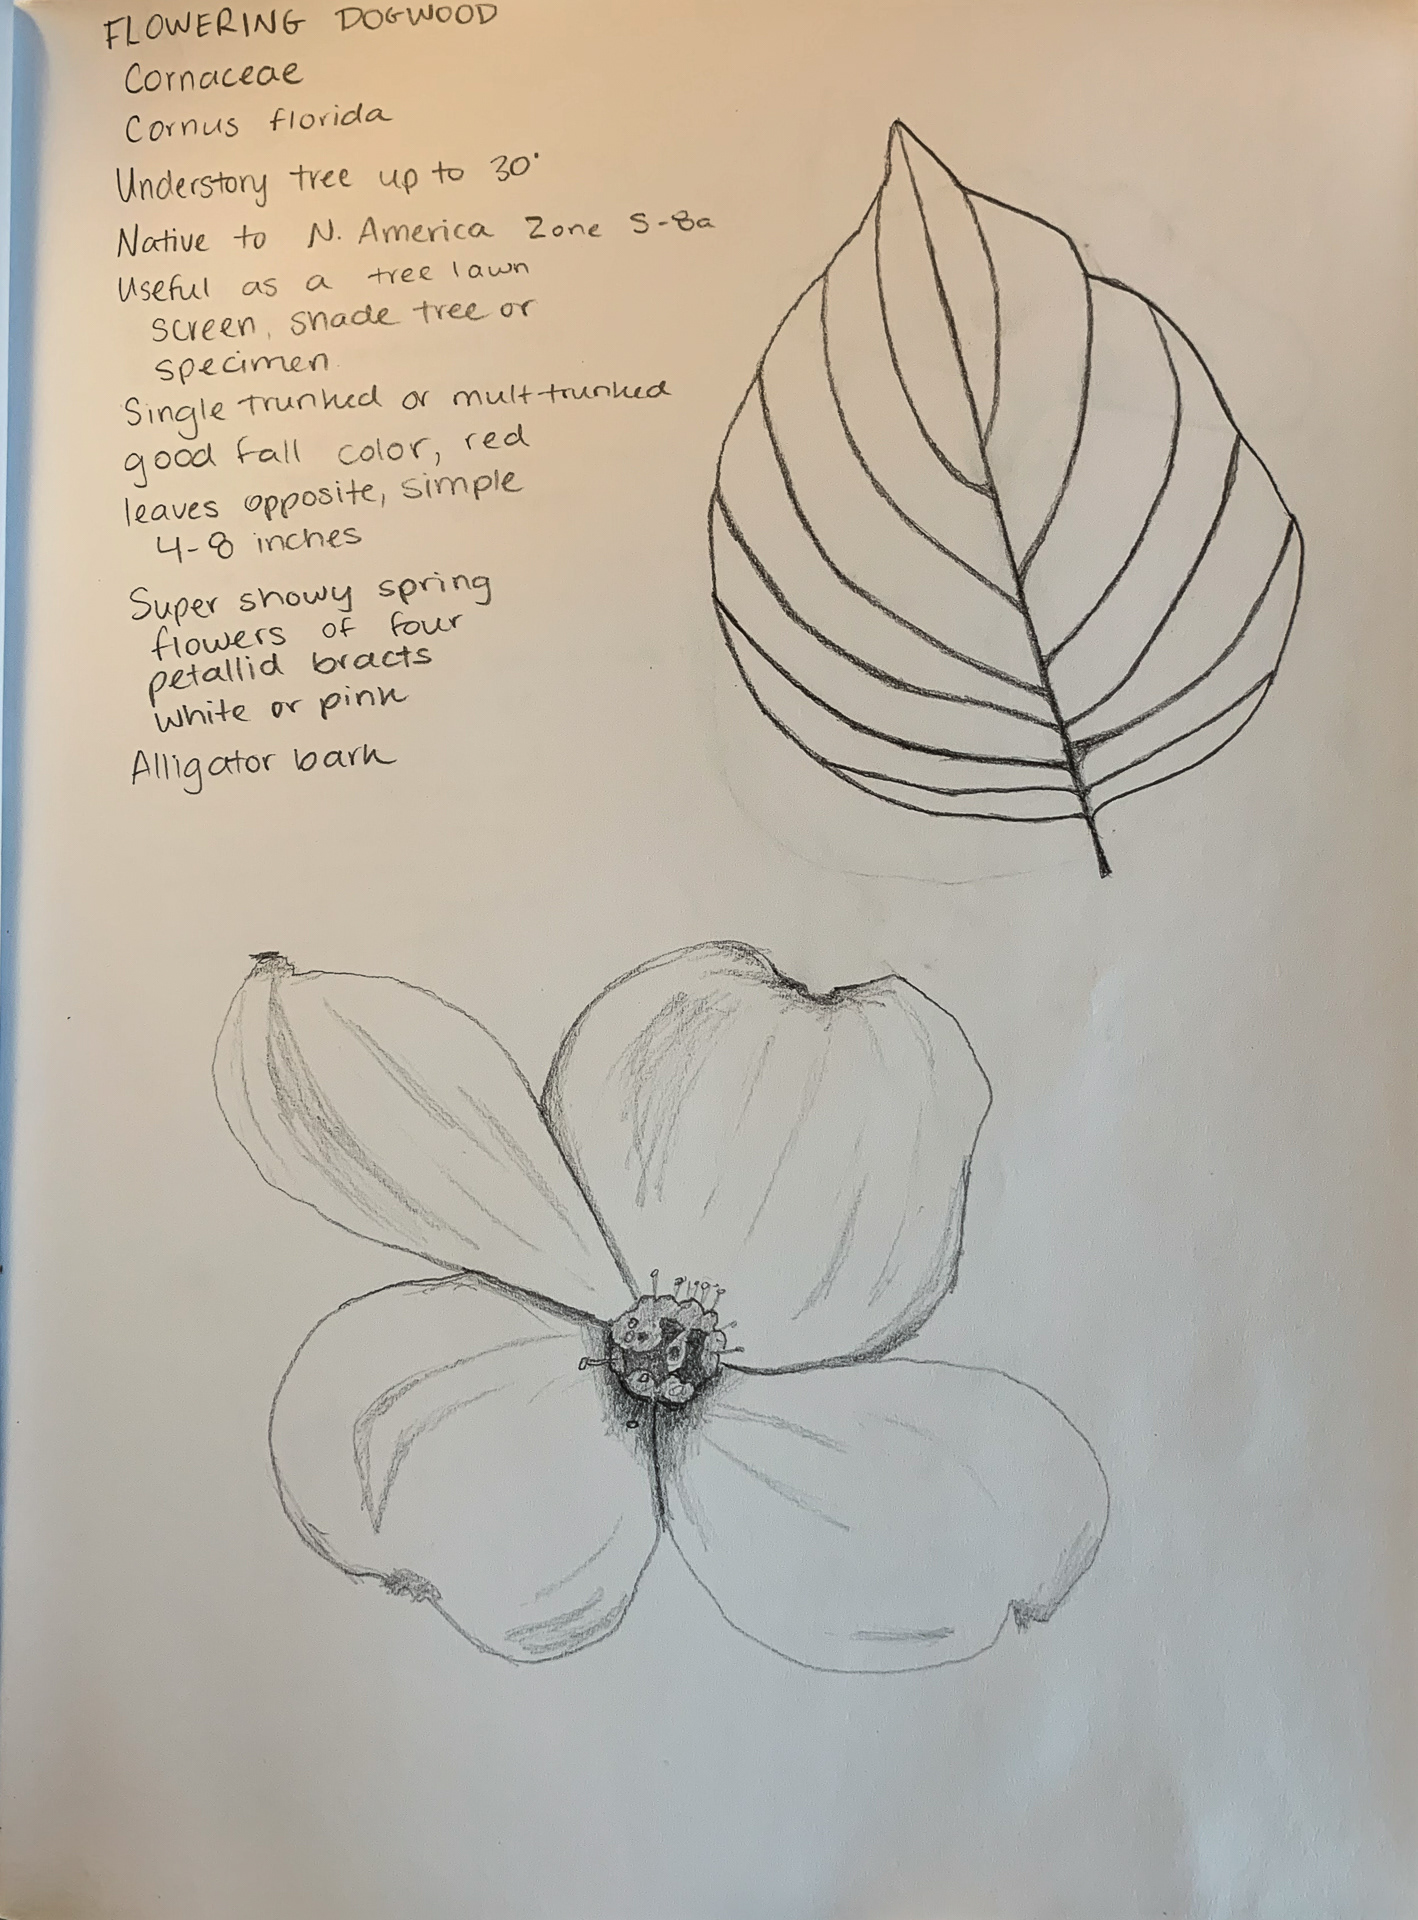 FLOWERING DOGWOOD
Cornaceae
Cornus florida
Understory tree up to 30'
Native to N. America Zone 5-8a
Useful as a tree lawn
screen, shade tree or
specimen.
Single trunked or mult-trunked
good fall color, red
leaves opposite, simple
4-8 inches
Super showy spring
flowers of four
petallid bracts
white or pink
Alligator bark